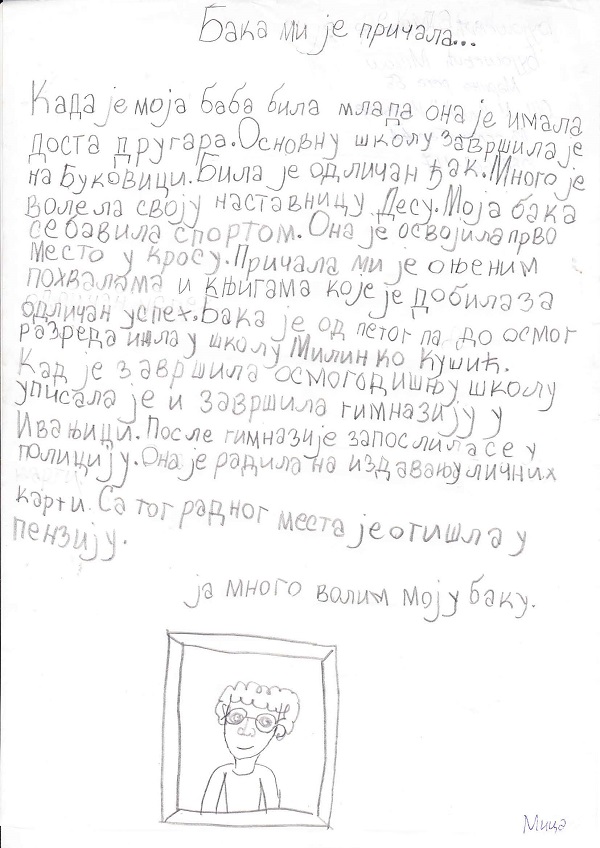 Бака ми је причала...
Када је моја баба била млада она је имала
доста другара. Основну школу завршила је
на Буковици. Била је одличан ђак. Много је
волела своју наставницу Десу. Моја бака
се бавила спортом. Она је освојила прво
место у кросу. Причала ми је о њеним
похвалама и књигама које је добила за
одличан успех. Бака је од петог па до осмог
разреда ишла у школу Милинко Кушић.
Кад је завршила осмогодишњу школу
уписала је и завршила гимназију у
Ивањици. После гимназије запослила се у
полицију. Она је радила на издавању личних
карти. Са тог радног места је отишла у
пензију.
ја много волим моју баку.
Мица